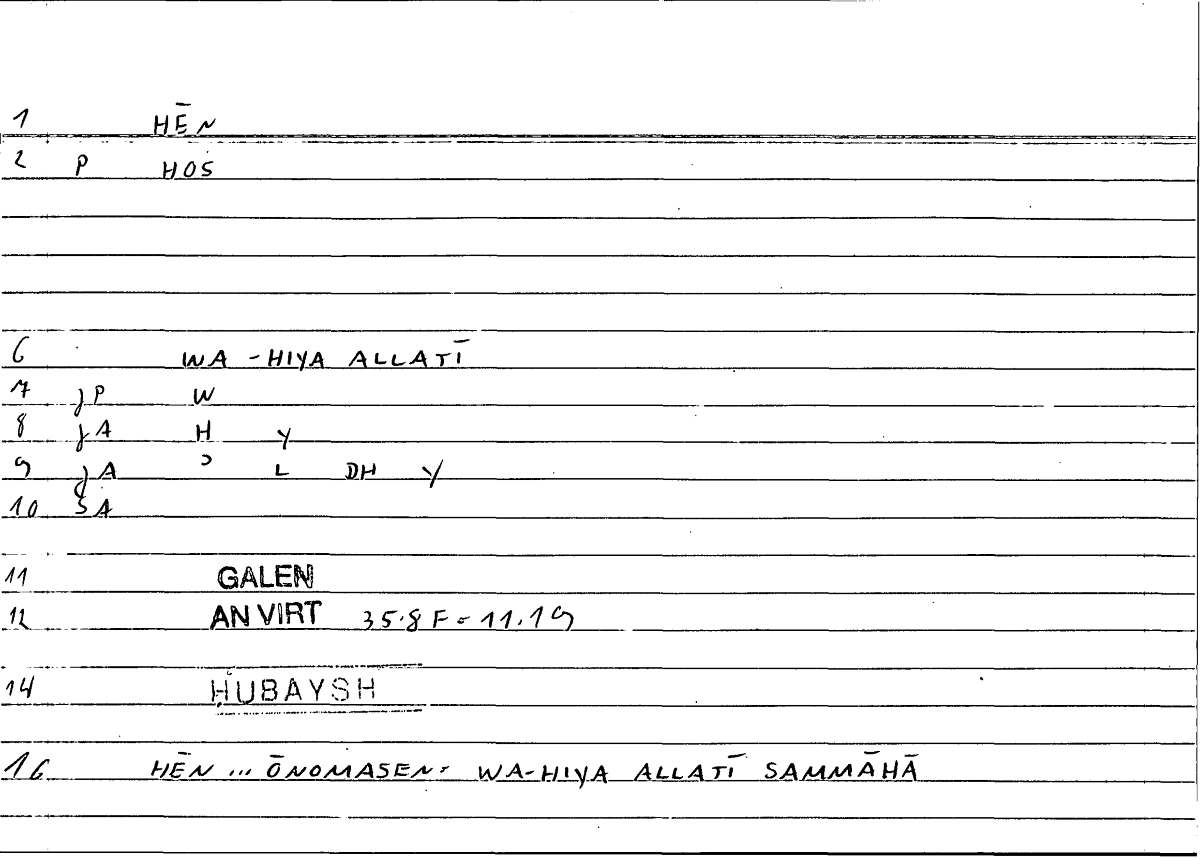 1 HĒN
2 P HOS
6 WA-HIYA ALLATĪ
7 jP W
8 jA H Y
9 jA ʾ L DH Y
10 SA
11 GALEN
12 AN VIRT 35.8 F = 11.19
14 ḤUBAYSH
16 HĒN ... ŌNOMASEN = WA-HIYA ALLATĪ SAMMĀHĀ